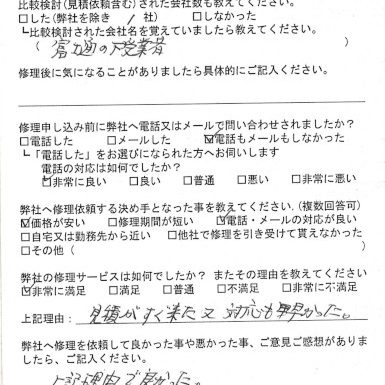 比較検討(見積依頼含む)された会社数も教えてください。
□した(弊社を除き 1 社) □しなかった
┗比較検討された会社名を覚えていましたら教えてください。
( 富士通の下請業者 )
修理後に気になることがありましたら具体的にご記入ください。
修理申し込み前に弊社へ電話又はメールで問い合わせされましたか?
□電話した □メールした ☑電話もメールもしなかった
┗「電話した」をお選びになられた方へお伺いします
電話の対応は如何でしたか?
☑非常に良い □良い □普通 □悪い □非常に悪い
弊社へ修理依頼する決め手となった事を教えてください。(複数回答可)
☑価格が安い □修理期間が短い ☑電話・メールの対応が良い
□自宅又は勤務先から近い □他社で修理を引き受けて貰えなかった
□その他( )
弊社の修理サービスは如何でしたか? またその理由を教えてください
☑非常に満足 □満足 □普通 □不満足 □非常に不満足
上記理由: 見積がすぐ来た又対応も早かった。
弊社へ修理を依頼して良かった事や悪かった事、ご意見ご感想がありましたら、ご記入ください。
上記理由で良かった。